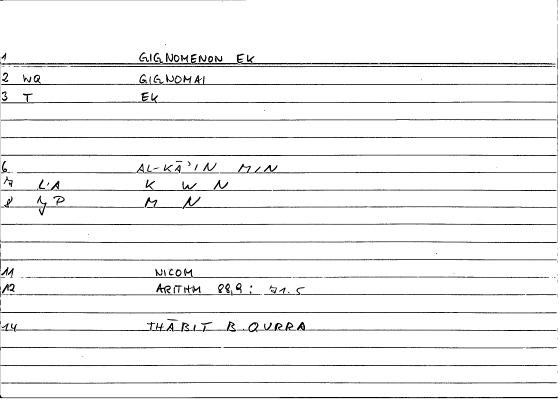 1 GIGNOMENON EK
2 WQ GIGNOMAI
3 T EK
6 AL-KĀʾIN MIN
7 L'A K W N
8 M N
11 NICOM
12 ARITHM 88,9: 71.5
14 THĀBIT B. QURRA